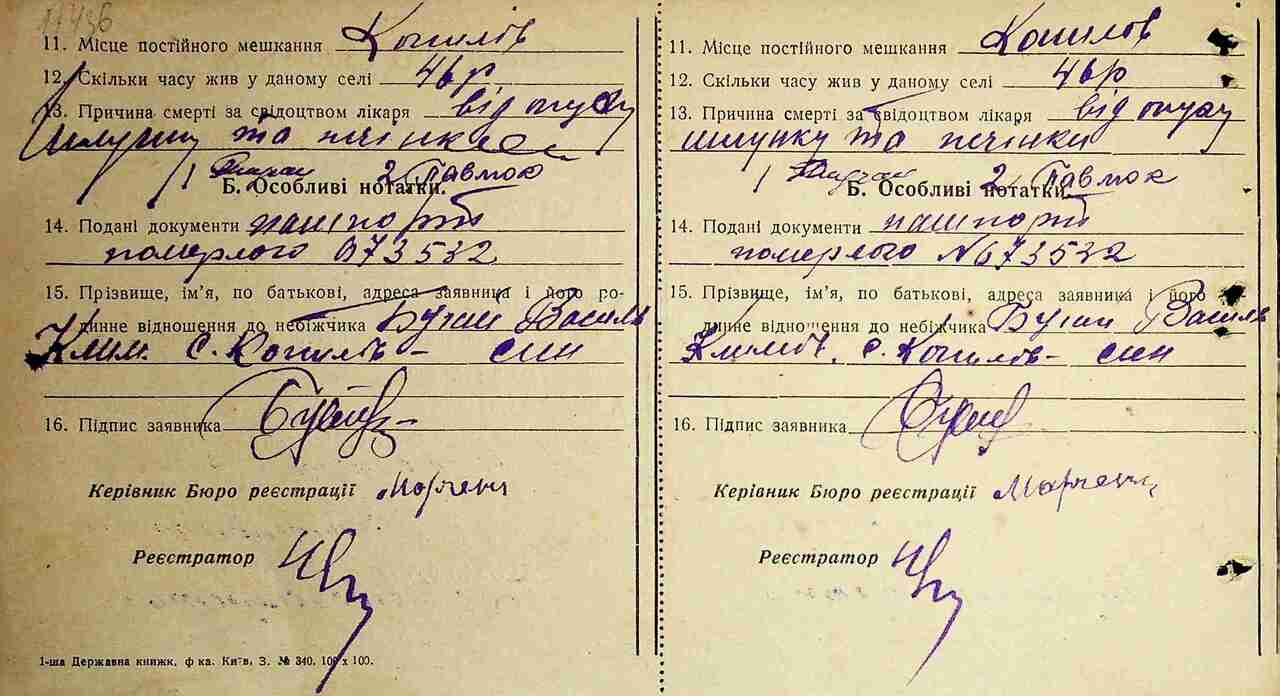 11436
11. Місце постійного мешкання Копилов
12. Скільки часу жив у даному селі 46 р
13. Причина смерті за свідоцтвом лікаря від
шлунку та печінки
1 2. Павлюк
Б. Особливі нотатки.
14. Подані документи пашпорт
померлого 673522
15. Прізвище, ім'я, по батькові, адреса заявника і його ро-
динне відношення до небіжчика Василь
Клим. с. Копилов – син
16. Підпис заявника
Керівник Бюро реєстрації Марченк
Реєстратор
1-ша Державна книжк. ф-ка. Київ, З. № 340. 100 x 100.
11. Місце постійного мешкання Копилов
12. Скільки часу жив у даному селі 46 р
13. Причина смерті за свідоцтвом лікаря від
шлунку та печінки
1 2. Павлюк
Б. Особливі нотатки.
14. Подані документи пашпорт
померлого №673522
15. Прізвище, ім'я, по батькові, адреса заявника і його ро-
динне відношення до небіжчика Василь
Климов. с. Копилов – син
16. Підпис заявника
Керівник Бюро реєстрації Марченк
Реєстратор